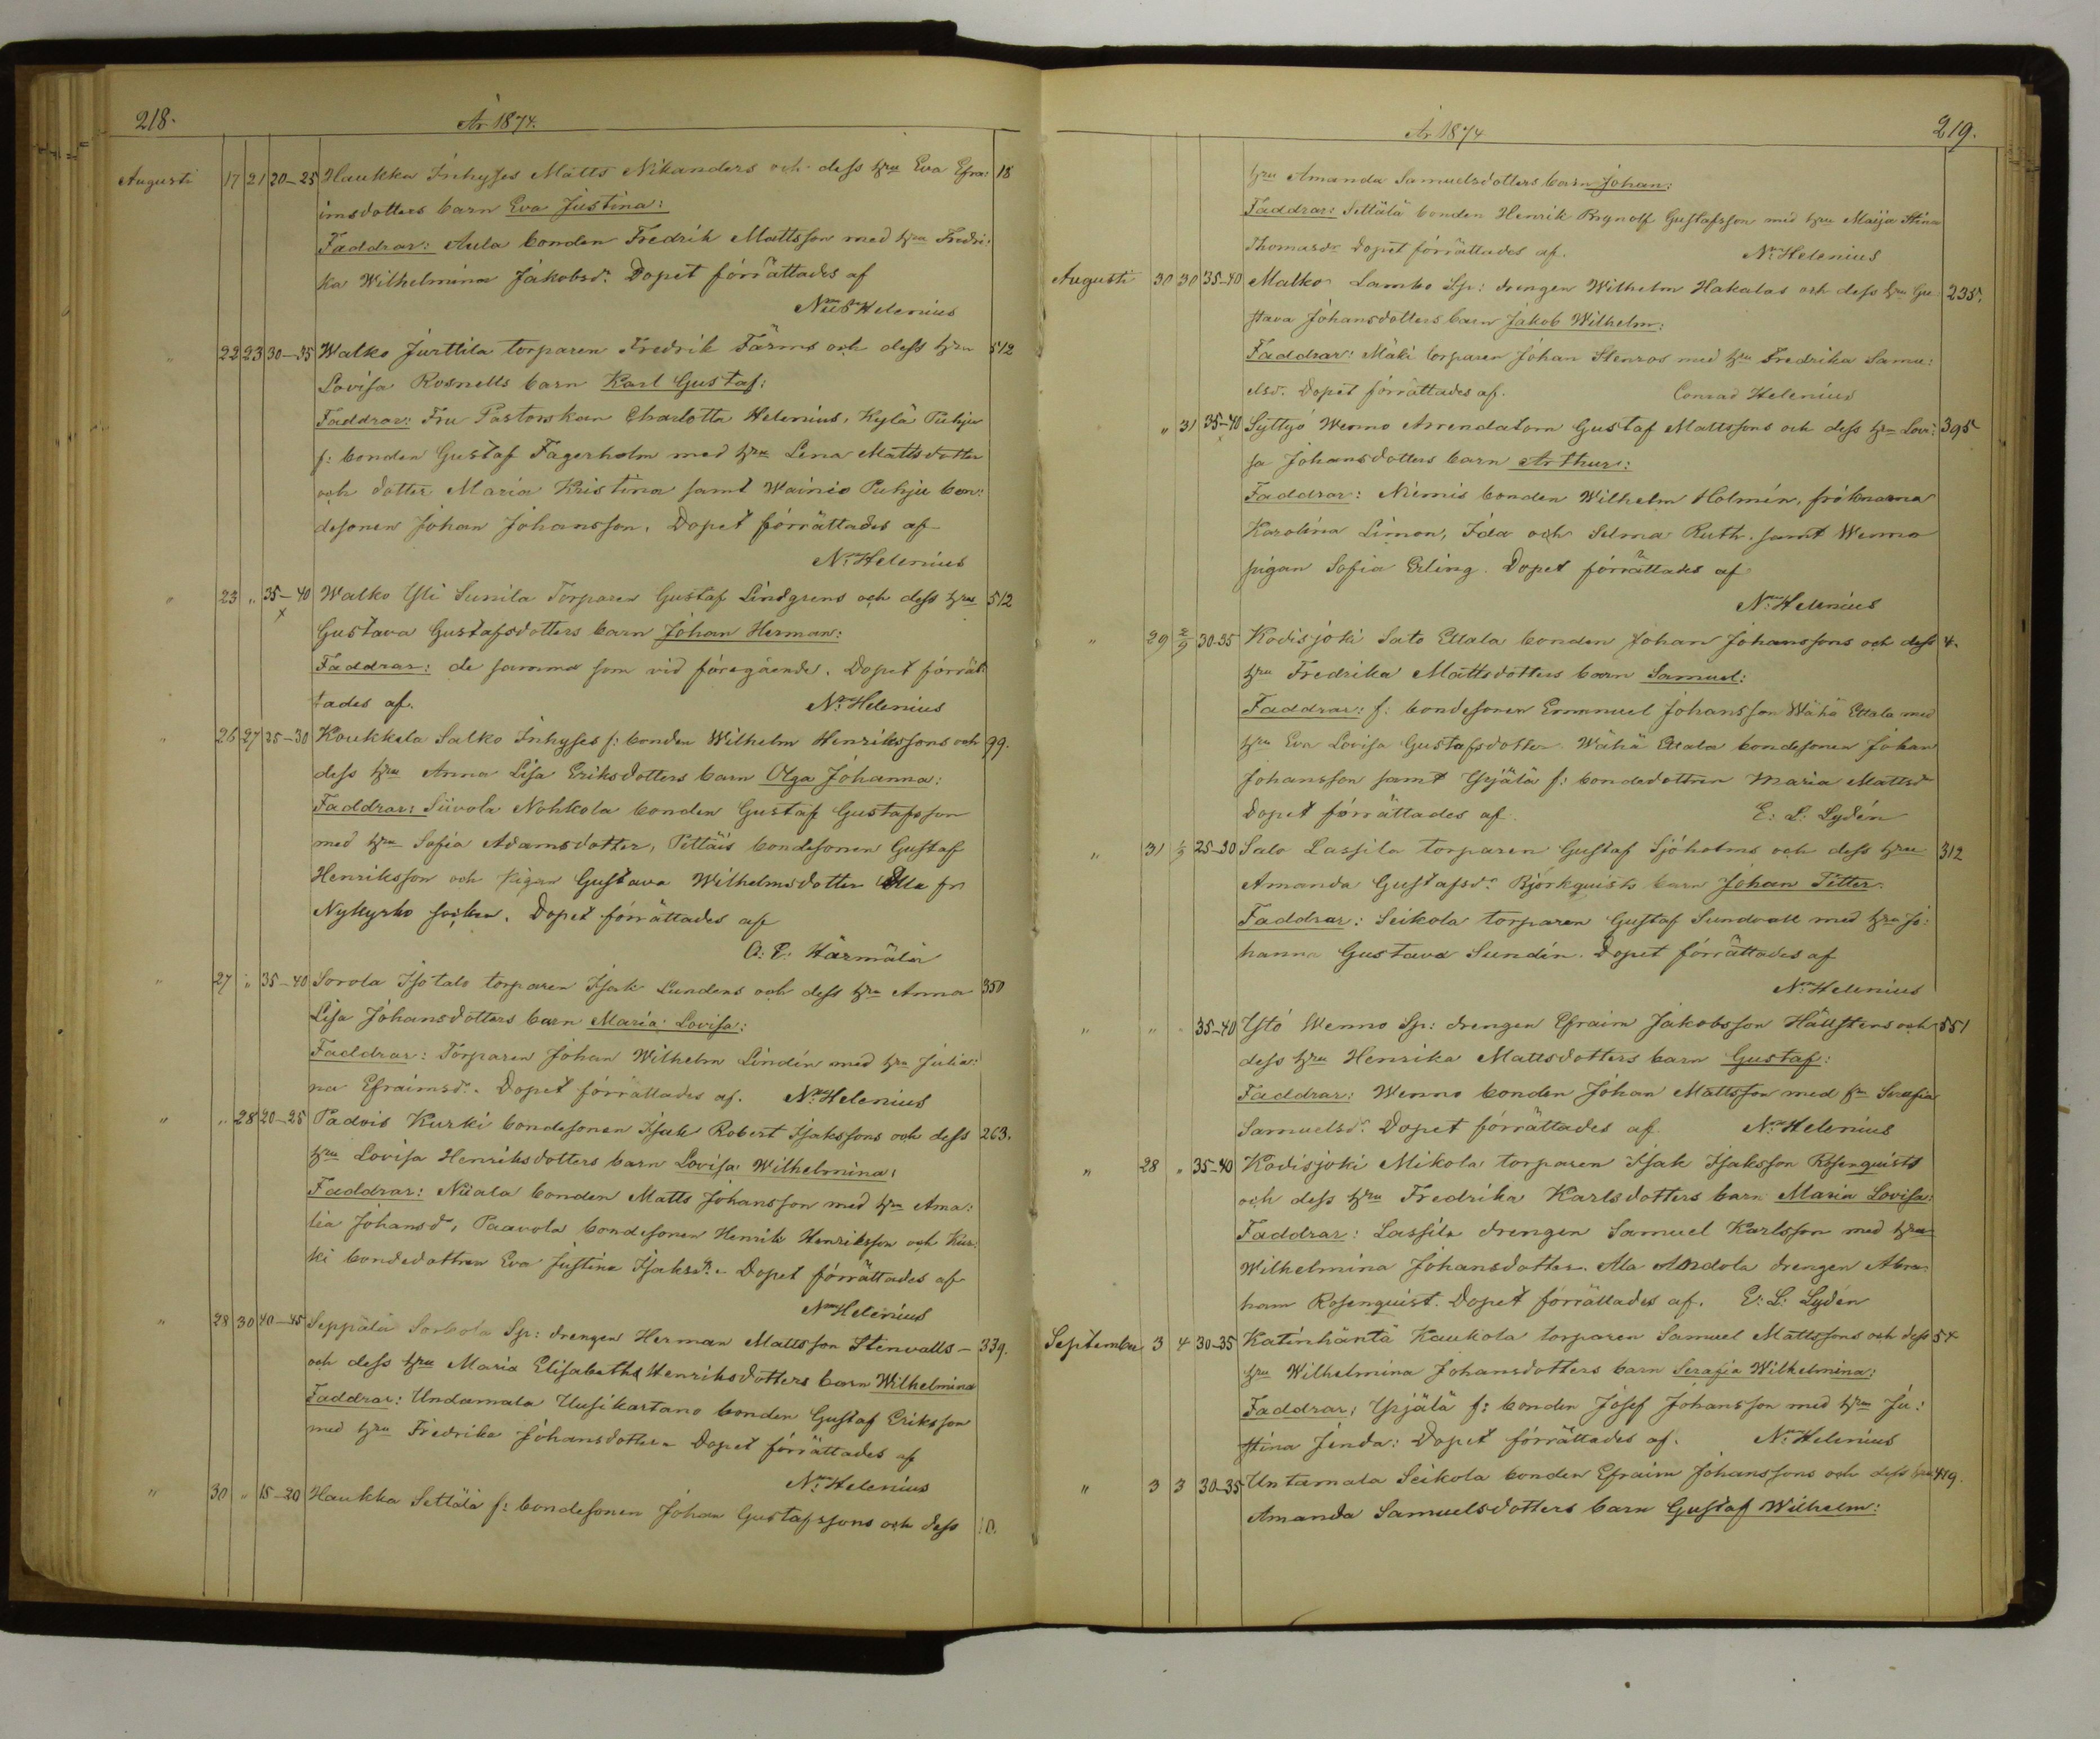 218.
År 1874.
Augusti 17 21 20-25 Haukka Inhyses Matts Nikanders och dess hru Eva Efra: 18
imsdotters barn Eva Justina:
Faddrar: Aula bonden Fredrik Mattsson med hru Fredri:
ka Wilhelmina Jakobsdr. Dopet förrättades af
Helenius
" 22 23 30-35 Walko Jurttila torparen Fredrik Färms och dess hru 512
Lovisa Rosnells barn Karl Gustaf:
Faddrar: Fru Pastorskan Charlotta Helenius, Kylä Puhju
f: bonden Gustaf Fagerholm med hru Lena Mattsdotter
och dotter Maria Kristina samt Wainio Puhju bon:
desonen Johan Johansson. Dopet förrättades af
Nr Helenius
" 23 " 35-40 Walko Yli Sunila Torparen Gustaf Lindgrens och dess hru 512
x
Gustava Gustafsdotters barn Johan Herman:
Faddrar: de samma som vid föregående. Dopet förrät:
tades af. Nr Helenius
" 26 27 25-30 Koukkela Salko Inhyses f: bonden Wilhelm Henrikssons och 99.
dess hru Anna Lisa Eriksdotters barn Olga Johanna:
Faddrar: Siivola Nohkola bonden Gustaf Gustafsson
med hru Sofia Adamsdotter, Pettäis bondesonen Gustaf
Henriksson och Pigan Gustava Wilhelmsdotter fr:
Nykyrko socken. Dopet förrättades af
A: E: Härmälä
" 27 " 35-40 Sorola Isotalo torparen Isak Lundens och dess hru Anna 350
Lisa Johansdotters barn Maria Lovisa:
Faddrar: Torparen Johan Wilhelm Lindén med hru Julia:
na Efraimsdr. Dopet förrättades af. Nr Helenius
" " 28 20-25 Padois Kurki bondesonen Isak Robert Isakssons och dess 263.
hru Lovisa Henriksdotters barn Lovisa Wilhelmina:
Faddrar: Niiala bonden Matts Johansson med hru Ama:
lia Johansdr, Paavola bondesonen Henrik Henriksson och Kur:
ki bondedottren Eva Justina Isaksdr. Dopet förrättades af
Nr Helenius
" 28 30 40-45 Seppälä Sorbola Sp: drengen Herman Mattsson Stenvalls - 339.
och dess hru Maria Elisabeths Henriksdotters barn Wilhelmina
Faddrar: Undamala Uusikartano bonden Gustaf Eriksson
med hru Fredrika Johansdotter. Dopet förrättades af
Nr Helenius
" 30 " 15-20 Haukka Settälä f: bondesonen Johan Gustafssons och dess 10.
År 1874
219.
hru Amanda Samuelsdotters barn Johan:
Faddrar: Settälä bonden Henrik Brynolf Gustafsson med hru Maija Stina
Thomasdr Dopet förrättades af. Nr Helenius
Augusti 30 30 35-40 Malko Lambo Sp: drengen Wilhelm Hakalas och dess hru Gu 235.
stava Johansdotters barn Jakob Wilhelm:
Faddrar: Mäki torparen Johan Stenros med hru Fredrika Samu:
elsdr. Dopet förrättades af. Conrad Helenius
" 31 35-40 Syttyö Wenno Arrendatorn Gustaf Mattssons och dess hru Lovi: 395
sa Johansdotters barn Arthur:
Faddrar: Niemis bonden Wilhelm Holmén, fröknarna
Karolina Limon, Ida och Selma Ruth. samt Wenno
pigan Sofia Erling. Dopet förrättades af
Nr Helenius
" 29 2/9 30-35 Kodisjoki Sato Ettala bonden Johan Johanssons och dess 4.
hru Fredrika Mattsdotters barn Samuel:
Faddrar: f: bondesonen Emmanuel Johansson Wähä Ettala med
hru Eva Lovisa Gustafsdotter. Wähä Ettala bondesonen Johan
Johansson samt Ypjälä f: bondedottren Maria Mattsdr
Dopet förrättades af. E: L: Lydén
" 31 1/9 25-30 Salo Lassila torparen Gustaf Sjöholms och dess hru 312
Amanda Gustafsdr. Björkquists barn Johan Titter.
Faddrar: Seikola torparen Gustaf Sundvall med hru Jo:
hanna Gustava Sundén. Dopet förrättades af
Nr Helenius
" " " 35-40 Ystö Wenno Sp: drengen Efraim Jakobsson Hällstens och 551
dess hru Henrika Mattsdotters barn Gustaf:
Faddrar: Wenno bonden Johan Mattsson med hr Serafia
Samuelsdr. Dopet förrättades af. Nr Helenius
" 28 " 35-40 Kodisjoki Mikola torparen Isak Isaksson Rosenquists
och dess hru Fredrika Karlsdotters barn Maria Lovisa:
Faddrar: Lassila drengen Samuel Karlsson med hru
Wilhelmina Johansdotter. Ala Andola drengen Abra:
ham Rosenquist. Dopet förrättades af. E: L: Lydén
September 3 4 30-35 Katinhäntä Kaukola torparen Samuel Mattssons och dess 54
hru Wilhelmina Johansdotters barn Serafia Wilhelmina:
Faddrar: Ypjälä f: bonden Josef Johansson med hru Ju:
stina Jenda: Dopet förrättades af. Nr Helenius
" 3 3 30-35 Untamala Seikola bonden Efraim Johanssons och dess hru 419.
Amanda Samuelsdotters barn Gustaf Wilhelm: